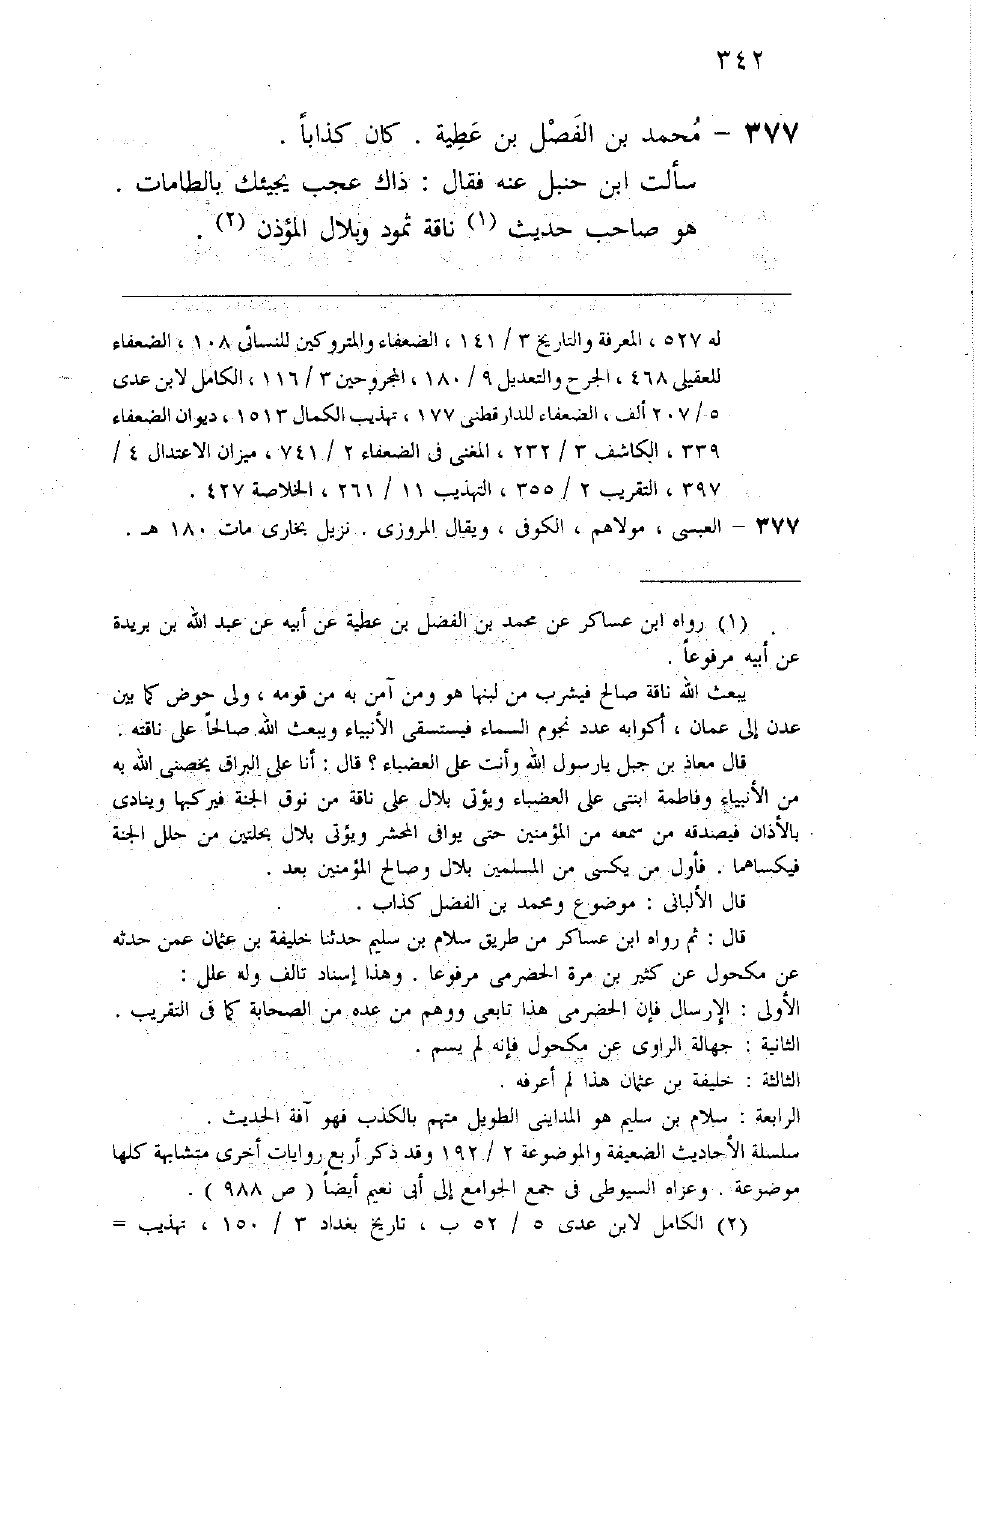 ٣٤٢
٣٧٧ – مُحمد بن الفَضْل بن عَطِية . كان كذاباً .
سألت ابن حنبل عنه فقال : ذاك عجب يجيئك بالطامات .
هو صاحب حديث (١) ناقة ثمود وبلال المؤذن (٢) .
له ٥٢٧ ، المعرفة والتاريخ ٣ / ١٤١ ، الضعفاء والمتروكين للنسائى ١٠٨ ، الضعفاء
للعقيلى ٤٦٨ ، الجرح والتعديل ٩ / ١٨٠ ، المجروحين ٣ / ١١٦ ، الكامل لابن عدى
٥ / ٢٠٧ ألف ، الضعفاء للدارقطنى ١٧٧ ، تهذيب الكمال ١٥١٣ ، ديوان الضعفاء
٣٣٩ ، الكاشف ٣ / ٢٣٢ ، المغنى فى الضعفاء ٢ / ٧٤١ ، ميزان الاعتدال ٤ /
٣٩٧ ، التقريب ٢ / ٣٥٥ ، التهذيب ١١ / ٢٦١ ، الخلاصة ٤٢٧ .
٣٧٧ – العبسى ، مولاهم ، الكوفى ، ويقال المروزى . نزيل بخارى مات ١٨٠ هـ .
(١) رواه ابن عساكر عن محمد بن الفضل بن عطية عن أبيه عن عبد الله بن بريدة
عن أبيه مرفوعاً .
يبعث الله ناقة صالح فيشرب من لبنها هو ومن آمن به من قومه ، ولى حوض كما بين
عدن إلى عمان ، أكوابه عدد نجوم السماء فيستسقى الأنبياء ويبعث الله صالحاً على ناقته .
قال معاذ بن جبل يارسول الله وأنت على العضباء ؟ قال : أنا على البراق يخصنى الله به
من الأنبياء وفاطمة ابنتى على العضباء ويؤتى بلال على ناقة من نوق الجنة فيركبها وينادى
بالأذان فيصدقه من سمعه من المؤمنين حتى يوافى المحشر ويؤتى بلال بحلتين من حلل الجنة
فيكساهما . فأول من يكسى من المسلمين بلال وصالح المؤمنين بعد .
قال الألبانى : موضوع ومحمد بن الفضل كذاب .
قال : ثم رواه ابن عساكر من طريق سلام بن سليم حدثنا خليفة بن عثمان عمن حدثه
عن مكحول عن كثير بن مرة الحضرمى مرفوعا . وهذا إسناد تالف وله علل :
الأولى : الإرسال فإن الحضرمى هذا تابعى ووهم من عده من الصحابة كما فى التقريب .
الثانية : جهالة الراوى عن مكحول فإنه لم يسم .
الثالثة : خليفة بن عثمان هذا لم أعرفه .
الرابعة : سلام بن سليم هو المداينى الطويل متهم بالكذب فهو آفة الحديث .
سلسلة الأحاديث الضعيفة والموضوعة ٢ / ١٩٢ وقد ذكر أربع روايات أخرى متشابهة كلها
موضوعة . وعزاه السيوطى فى جمع الجوامع إلى أبى نعيم أيضاً ( ص ٩٨٨ ) .
(٢) الكامل لابن عدى ٥ / ٥٢ ب ، تاريخ بغداد ٣ / ١٥٠ ، تهذيب =